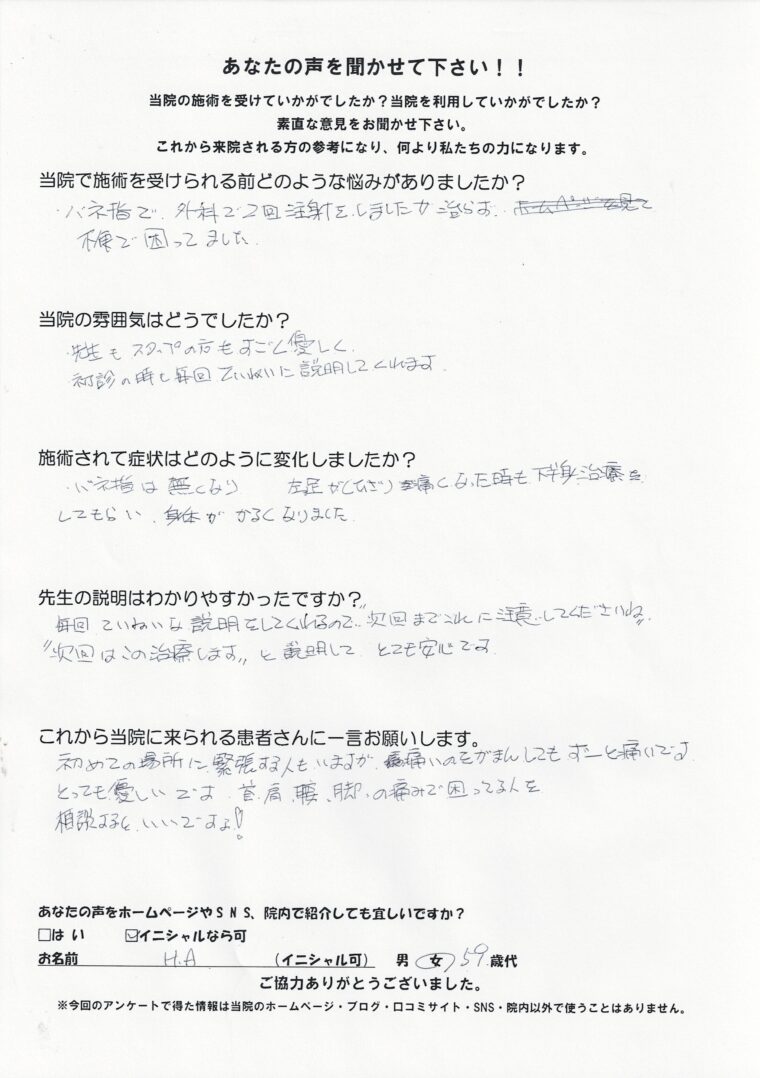 あなたの声を聞かせて下さい！！
当院の施術を受けていかがでしたか？当院を利用していかがでしたか？
素直な意見をお聞かせ下さい。
これから来院される方の参考になり、何より私たちの力になります。
当院で施術を受けられる前どのような悩みがありましたか？
・バネ指で、外科で2回注射をしましたが治らず、ホームページを見て
不便で困ってました。
当院の雰囲気はどうでしたか？
・先生もスタッフの方もすごく優しく、
初診の時も毎回ていねいに説明してくれます。
施術されて症状はどのように変化しましたか？
・バネ指は無くなり 左足がひざり痛くなった時も下半身治療を
してもらい、身体がかるくなりました。
先生の説明はわかりやすかったですか？
毎回ていねいな説明をしてくれるので、"次回までこれに注意してくださいね"
"次回はこの治療します"と説明して、とても安心です。
これから当院に来られる患者さんに一言お願いします。
初めての場所に緊張する人もいますが、痛いのをがまんしてもずーと痛いです。
とっても優しいです。首、肩、腰、脚、の痛みで困ってる人を
相談するといいですよ！
あなたの声をホームページやＳＮＳ、院内で紹介しても宜しいですか？
□はい ☑イニシャルなら可
お名前 H.A （イニシャル可） 男 女 59 歳代
ご協力ありがとうございました。
※今回のアンケートで得た情報は当院のホームページ・ブログ・口コミサイト・SNS・院内以外で使うことはありません。